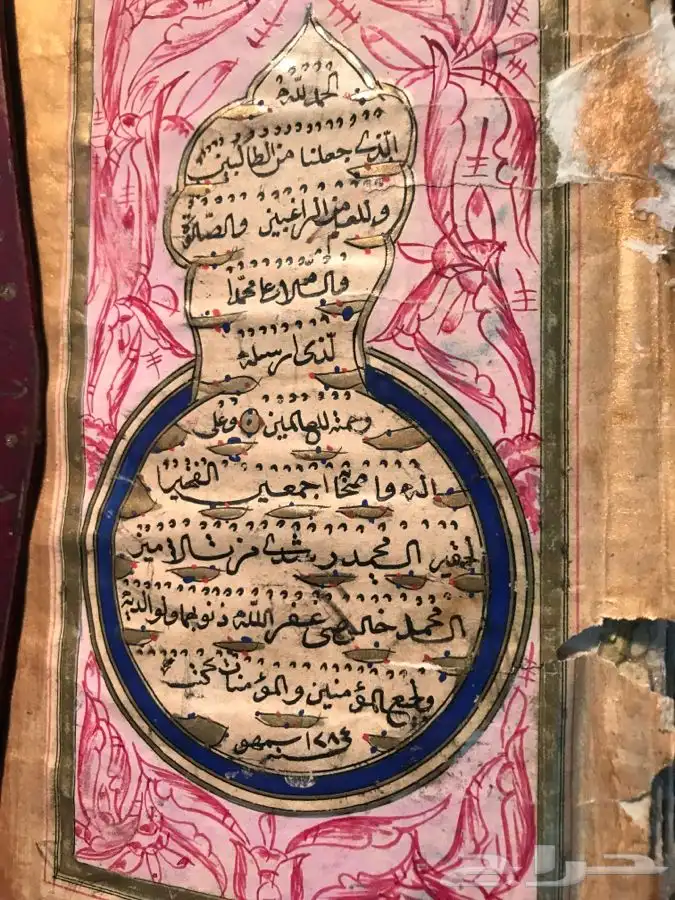 الحمد لله
الذى جعلنا من الطالبين
وللعلم من الراغبين والصلاة
والسلام على محمد
الذى ارسله
رحمة للعالمين وعلى
اله واصحابه اجمعين الفقير
الحقير السيد محمد رشدى من تلاميذ
السيد محمد خالصى غفر الله ذنوبهما ولوالديه
ولجميع المؤمنين والمؤمنات
فى سنه ١٢٨٤
حراج